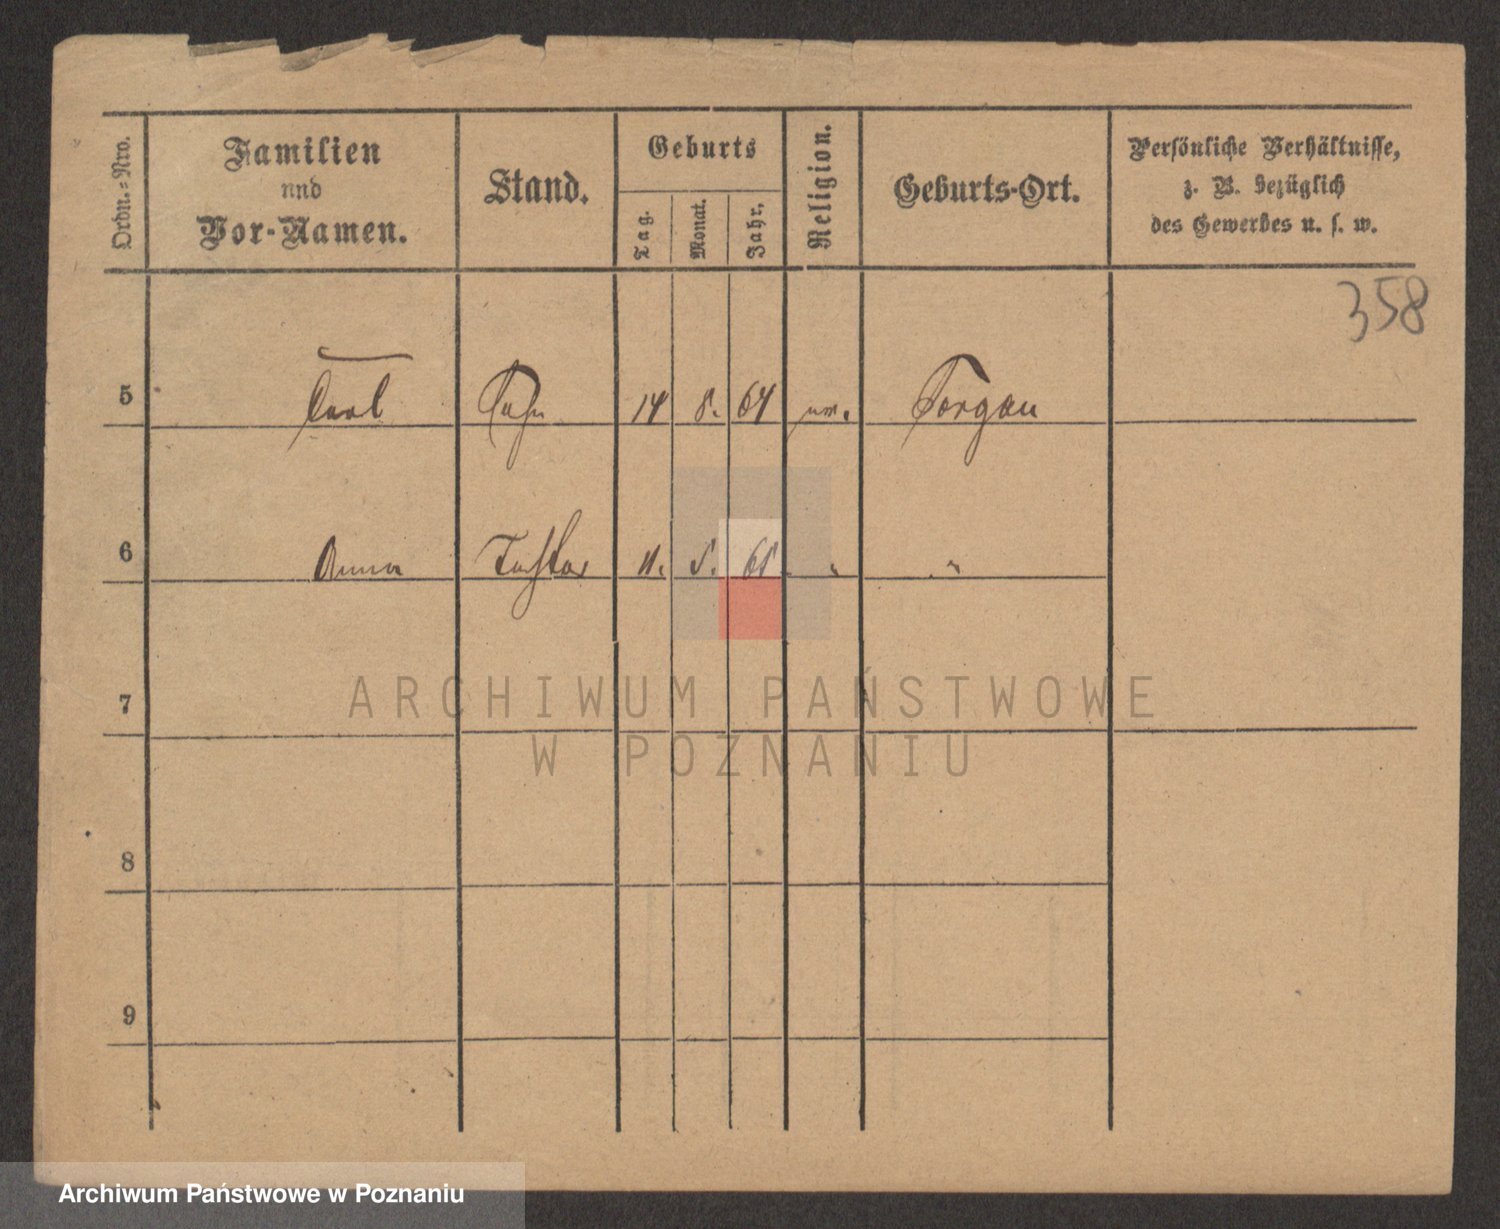 Ordn.=Nro.
Familien
und
Vor-Namen.
Stand.
Geburts
Tag.
Monat.
Jahr.
Religion.
Geburts-Ort.
Persönliche Verhältnisse,
z. B. bezüglich
des Gewerbes u. s. w.
358
5 Carl Sohn 14 8. 64 ev. Torgau
6 Anna Tochter 11. 5. 68 " "
7
8
9
ARCHIWUM PAŃSTWOWE
W POZNANIU
Archiwum Państwowe w Poznaniu